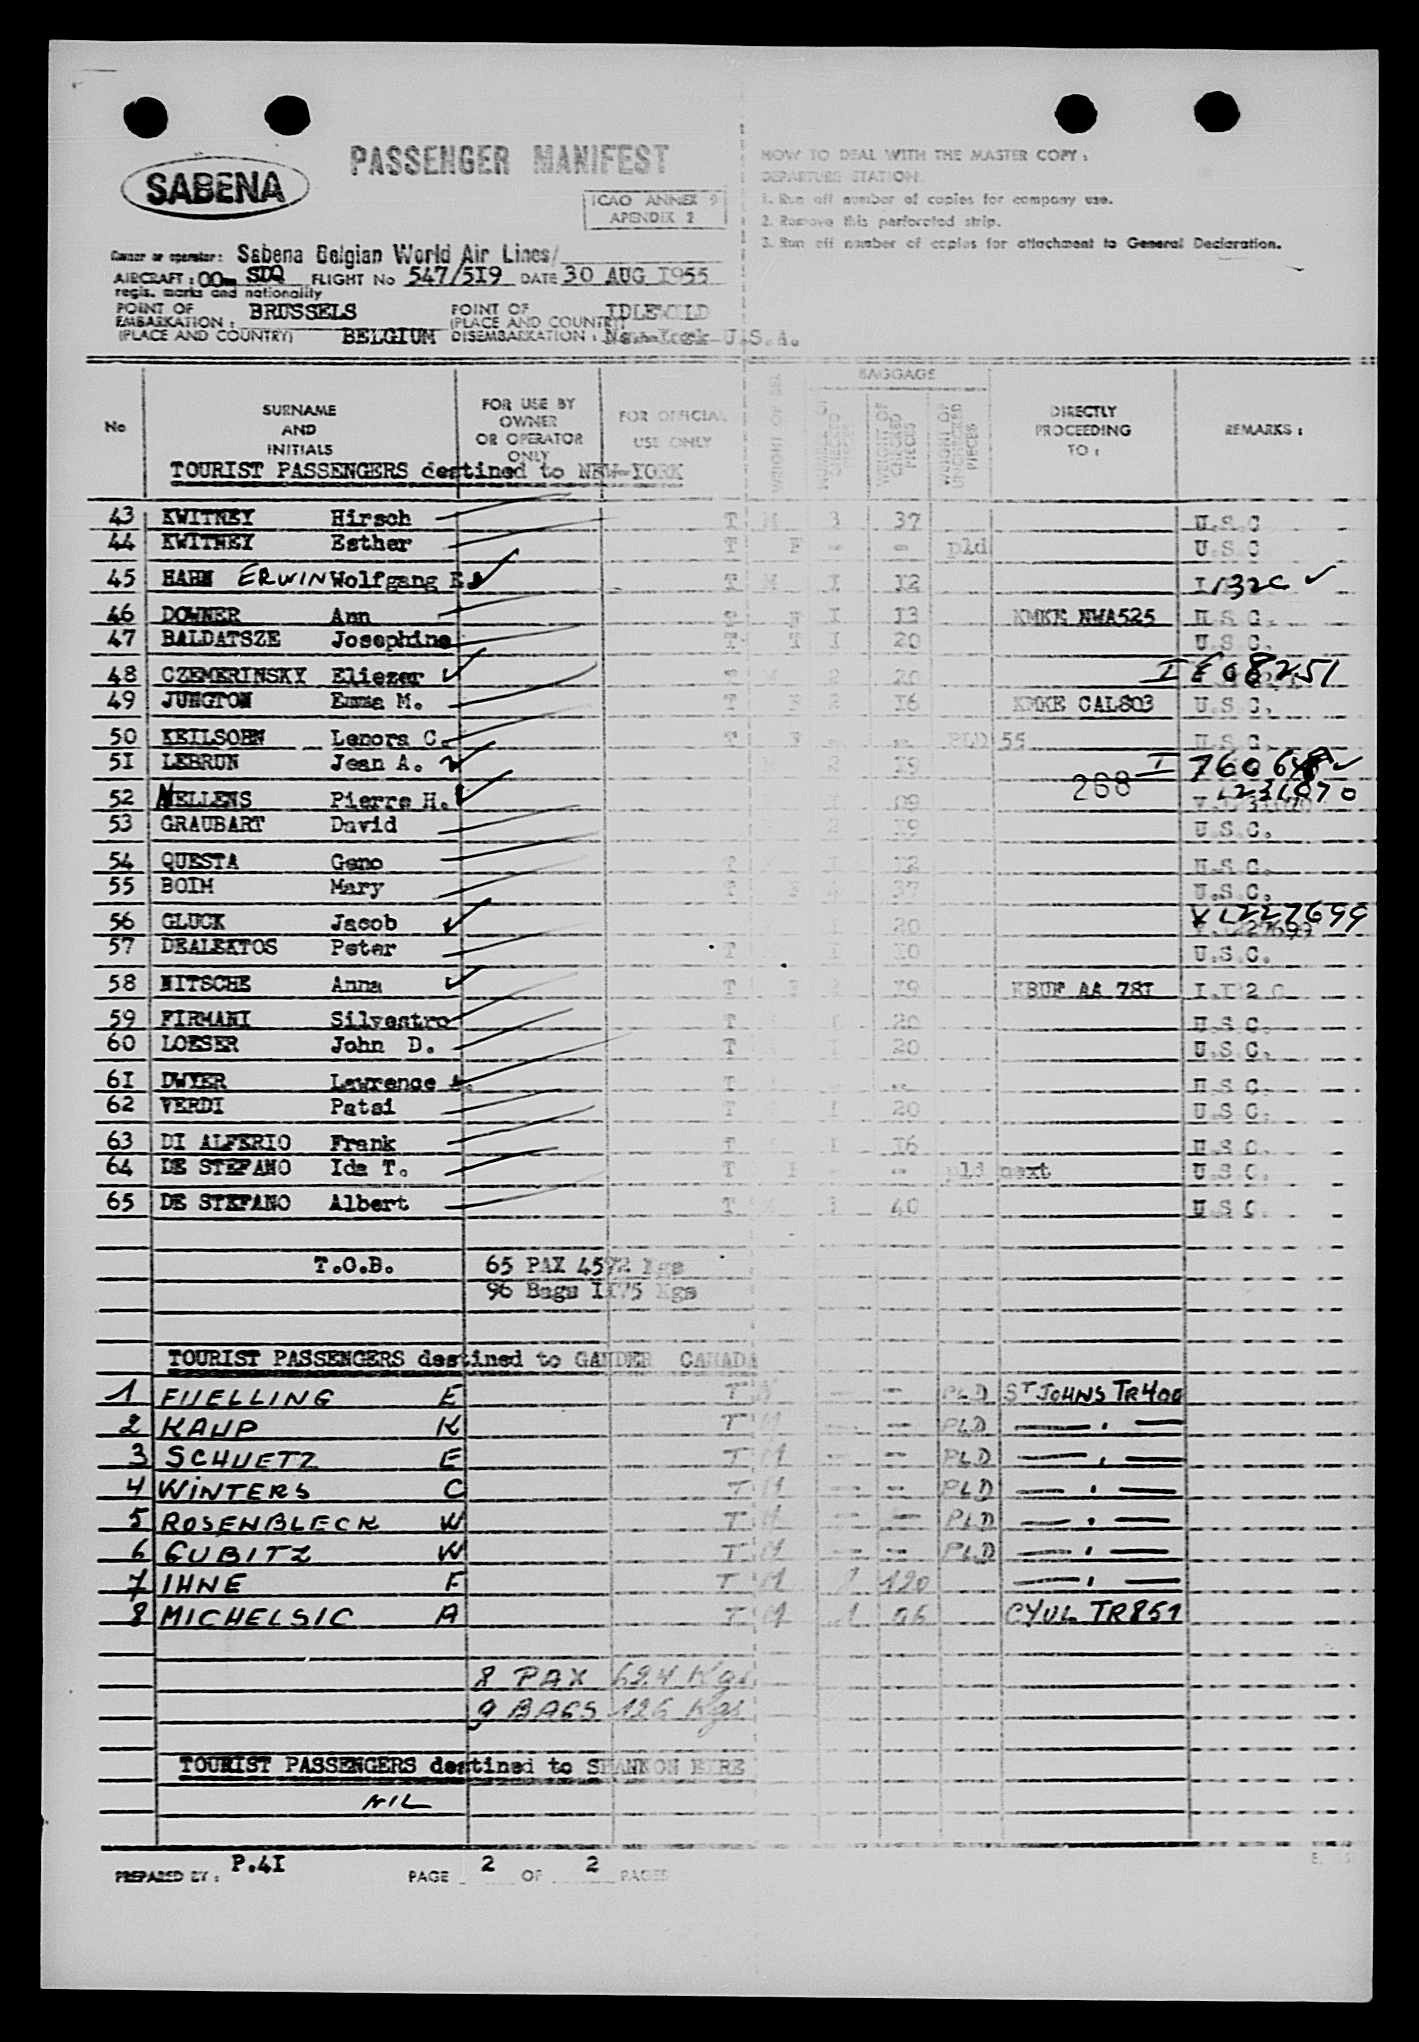 PASSENGER MANIFEST
SABENA
ICAO ANNEX 9
APENDIX 2
HOW TO DEAL WITH THE MASTER COPY :
DEPARTURE STATION
1. Run off number of copies for company use.
2. Remove this perforated strip.
3. Run off number of copies for attachment to General Declaration.
Owner or operator : Sabena Belgian World Air Lines/
AIRCRAFT : OO- SDQ FLIGHT No 547/519 DATE 30 AUG 1955
regis. marks and nationality
POINT OF EMBARKATION : BRUSSELS POINT OF IDLEWILD
(PLACE AND COUNTRY) BELGIUM (PLACE AND COUNTRY) DISEMBARKATION : New-York U.S.A.
No SURNAME AND INITIALS FOR USE BY OWNER OR OPERATOR ONLY FOR OFFICIAL USE ONLY BAGGAGE DIRECTLY PROCEEDING TO : REMARKS :
WEIGHT OF CHECKED PIECES WEIGHT OF UNCHECKED PIECES
TOURIST PASSENGERS destined to NEW-YORK
43 KWITNEY Hirsch T M 3 37 U.S.C
44 KWITNEY Esther T F - - pld U.S.C
45 HAHN ERWIN Wolfgang E. T M I I2
46 DOWNER Ann F I I3 KMKE NWA525 U.S.C.
47 BALDATSZE Josephine T F I 20 U.S.C.
48 CZEMERINSKY Eliezer M 2 20 I E08251
49 JUNGTOW Emma M. T F 2 I6 KMKE CAL803 U.S.C.
50 KEILSOHN Lenora C. T F - - PLD 55 U.S.C.
51 LEBRUN Jean A. M 2 I9 I 760648
52 NELLENS Pierre H. 268
53 GRAUBART David U.S.C.
54 QUESTA Geno T I I2 U.S.C.
55 BOIM Mary T F 37 U.S.C.
56 GLUCK Jacob 20 V 1227699
57 DEALEKTOS Peter T I I0 U.S.C.
58 NITSCHE Anna T F 2 I9 KBUF AA 78I
59 FIRMANI Silvestro T 20 U.S.C.
60 LOESER John D. T I 20 U.S.C.
61 DWYER Lawrence A. T - U.S.C.
62 VERDI Patsi T I 20 U.S.C.
63 DI ALFERIO Frank T I I6 U.S.C.
64 DE STEFANO Ida T. T F - - pld next U.S.C.
65 DE STEFANO Albert T 40 U.S.C.
T.O.B. 65 PAX 4572 Kgs
96 Bags II75 Kgs
TOURIST PASSENGERS destined to GANDER CANADA
1 FUELLING E T M - - PLD ST JOHNS TR400
2 KAUP K T M - - PLD — " —
3 SCHUETZ E T M - - PLD — " —
4 WINTERS C T M - - PLD — " —
5 ROSENBLECK W T M - - PLD — " —
6 GUBITZ W T M - - PLD — " —
7 IHNE F T M 120 — " —
8 MICHELSIC A T M 1 CYUL TR851
8 PAX 624 Kgs
9 BAGS 126 Kgs
TOURIST PASSENGERS destined to SHANNON EIRE
NIL
PREPARED BY : P.4I PAGE 2 OF 2 PAGES